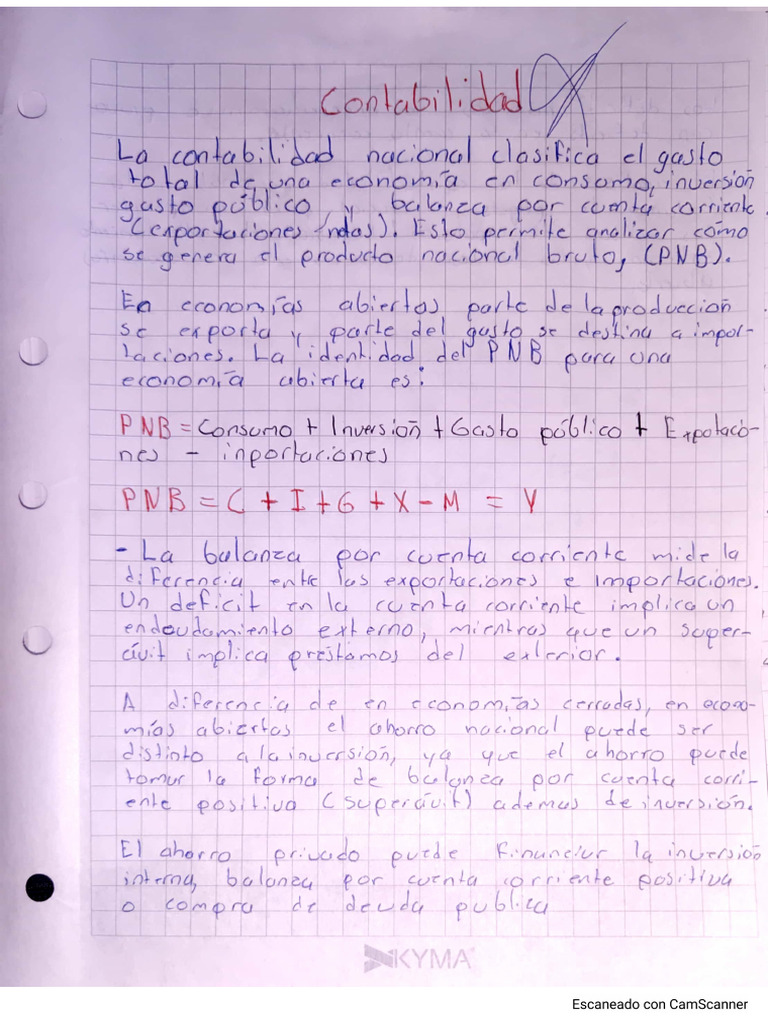 Contabilidad
La contabilidad nacional clasifica el gasto
total de una economía en consumo, inversión
gasto público y balanza por cuenta corriente
(exportaciones ndas). Esto permite analizar cómo
se genera el producto nacional bruto, (PNB).
En economías abiertos parte de la producción
se exporta y parte del gusto se destina a impor-
taciones. La identidad del PNB para una
economía abierta es:
PNB = Consumo + Inversión + Gasto público + Expotacio-
nes - inportaciones
PNB = C + I + G + X - M = Y
- La balanza por cuenta corriente mide la
diferencia entre las exportaciones e importaciones.
Un deficit en la cuenta corriente implica un
endeudamiento externo, mientras que un super-
cívit implica préstamos del exterior.
A diferencia de en economías cerradas, en econo-
mías abiertas el ahorro nacional puede ser
distinto a la inversión, ya que el ahorro puede
tomar la forma de balanza por cuenta corri-
ente positiva (supercívit) ademas de inversión.
El ahorro privado puede financiar la inversión
interna, balanza por cuenta corriente positiva
o compra de deuda publica
KYMA
Escaneado con CamScanner